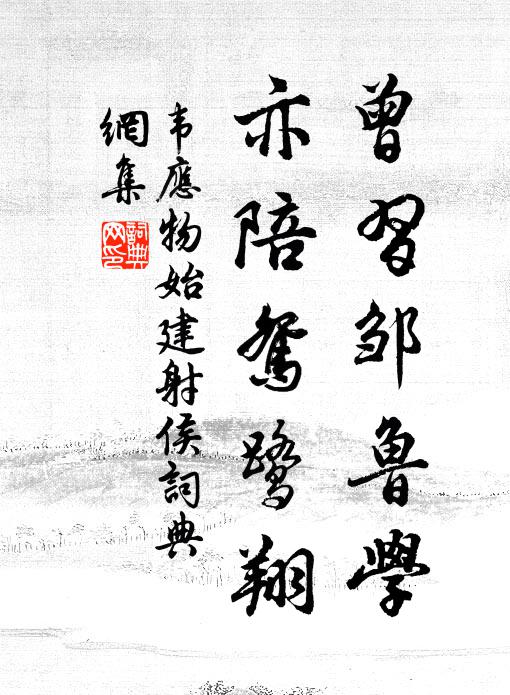 曾習邹魯學
亦陪鴛鷺翔
韦應物始建射侯詞典
網集
詞典
网印